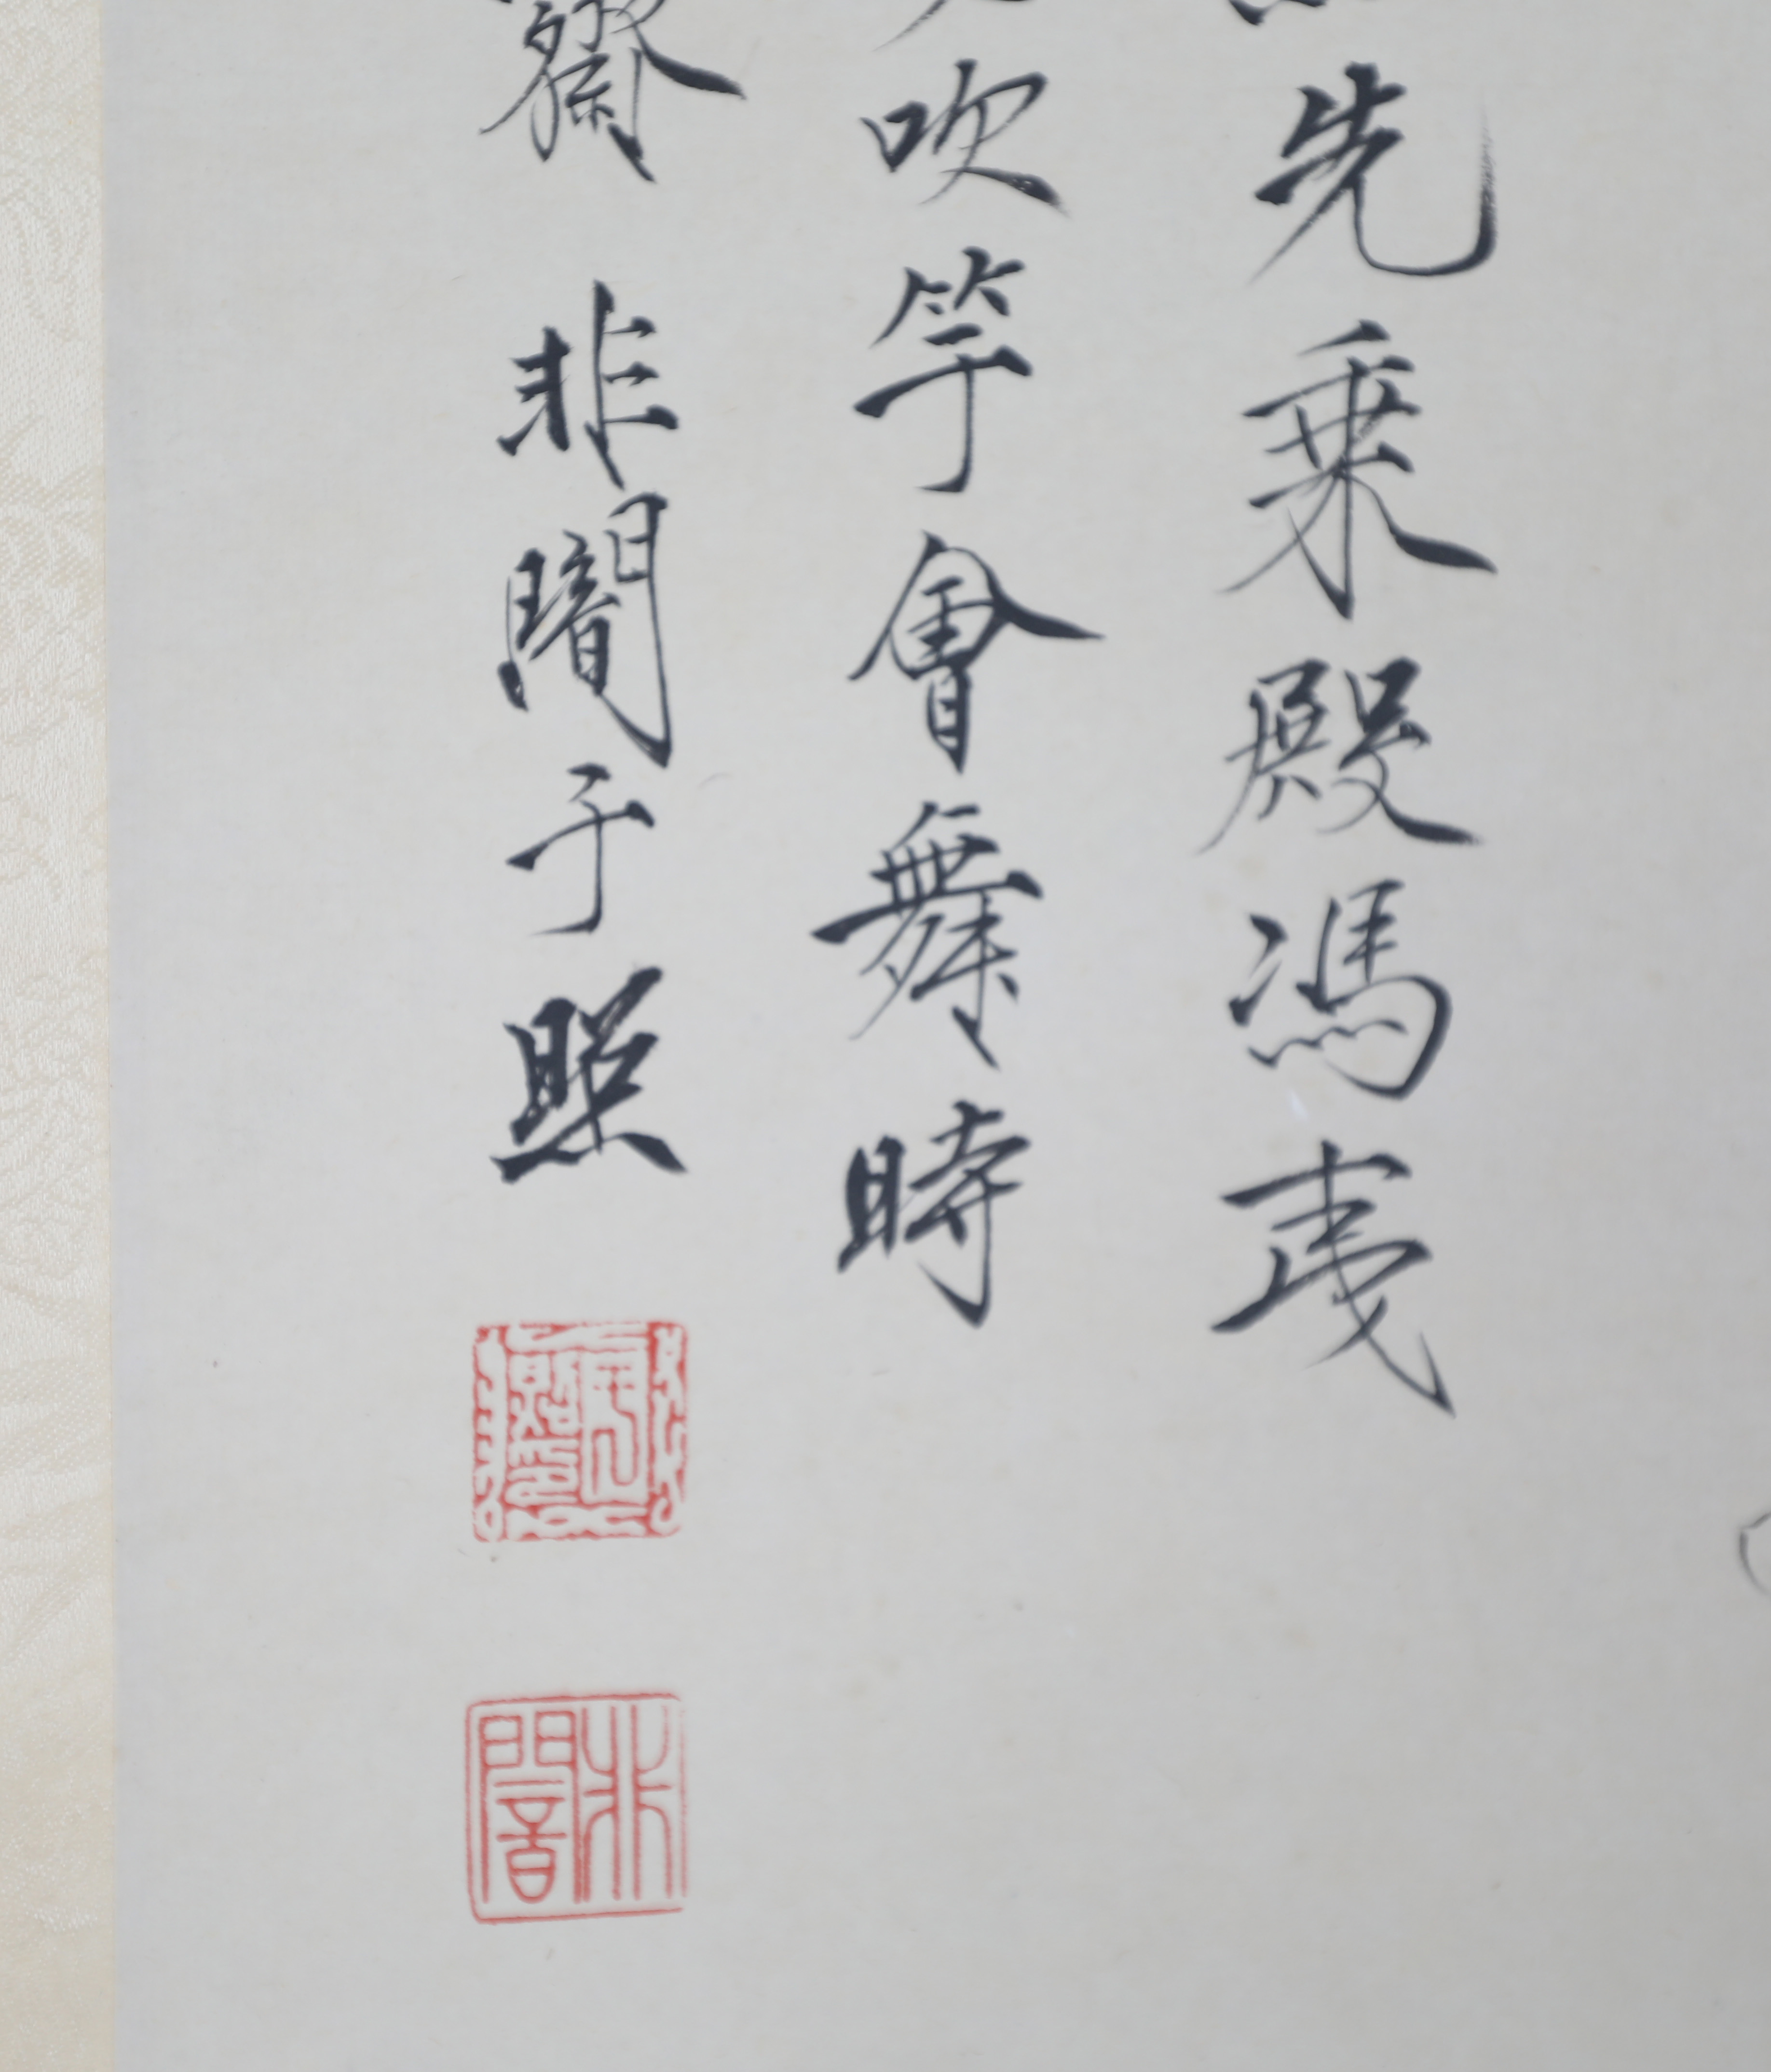 先乘殿馮夷
吹竽會舞時
齋 非闇于照
非闇